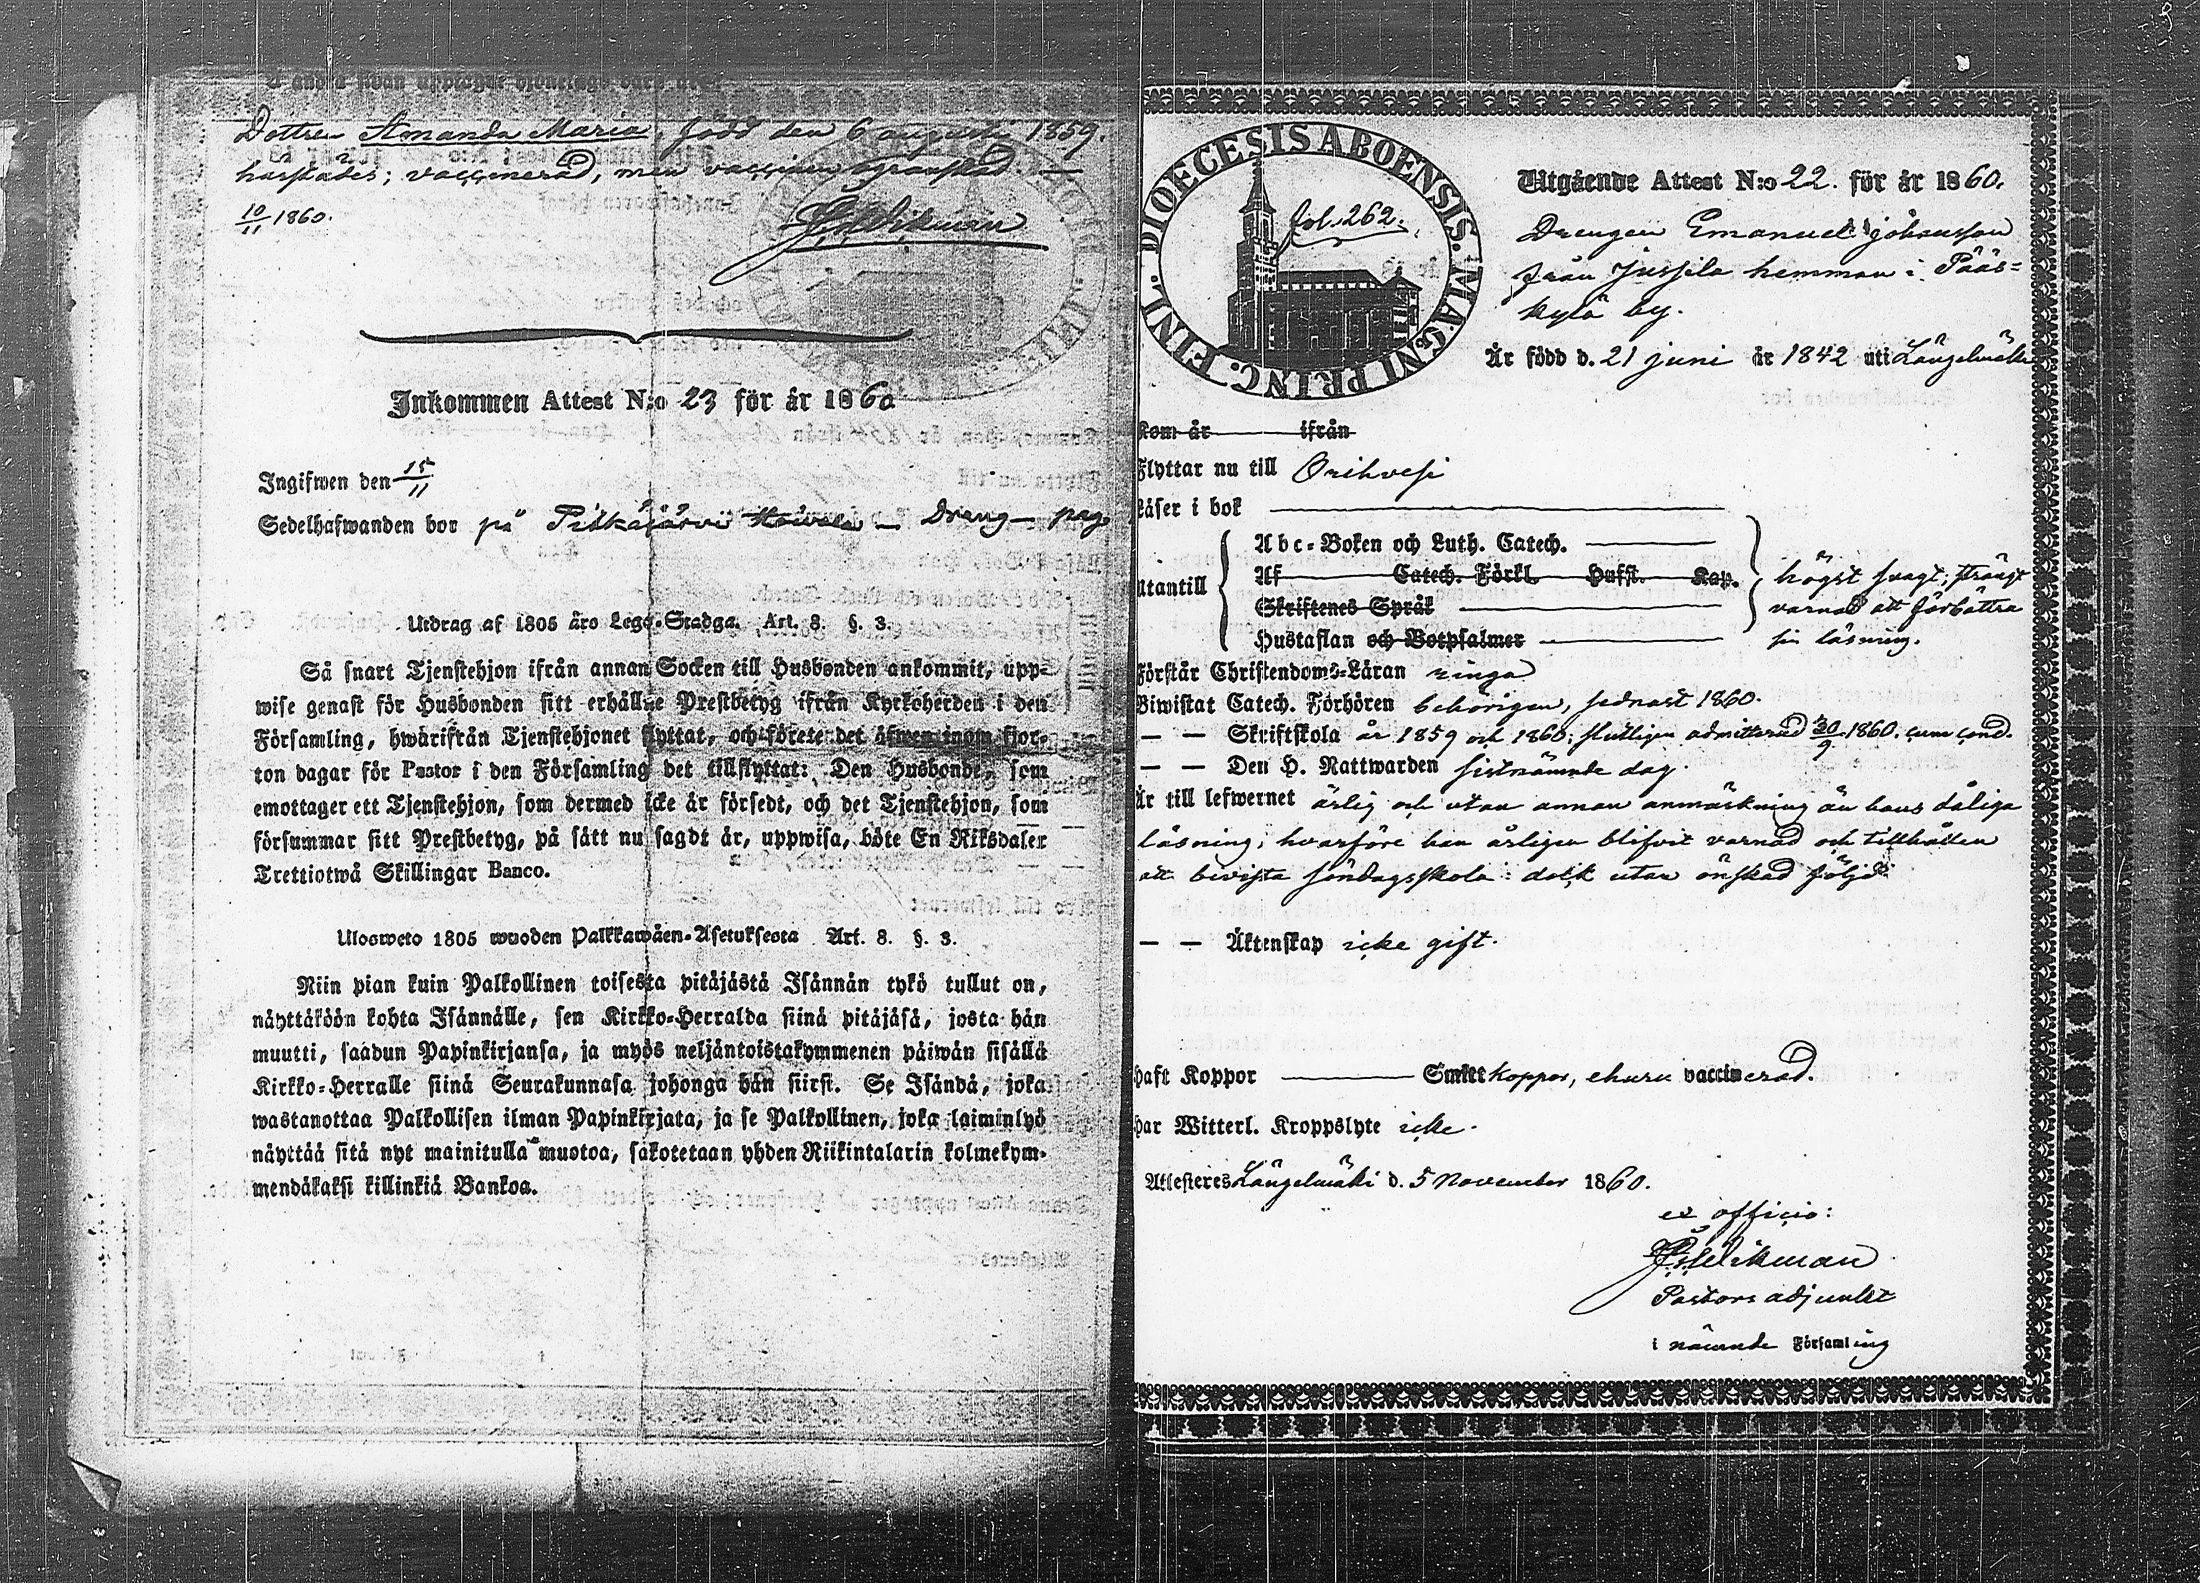 Dottren Amanda Maria, född den 6 augusti 1859.
härstädes; vaccinerad, men vaccinen ogranskad. —
10/11 1860.
Inkommen Attest N:o 23 för år 1860
Ingifwen den 15/11
Sedelhafwanden bor på Pitkäjärvi — Dreng — pag.
Utdrag af 1805 års Lego-Stadga. Art. 8. §. 3.
Så snart Tjenstehjon ifrån annan Socken till Husbonden ankommit, upp-
wise genast för Husbonden sitt erhållne Prestbetyg ifrån Kyrkoherden i den
Församling, hwarifrån Tjenstehjonet flyttat, och förete det äfwen inom fjor-
ton dagar för Pastor i den Församling det tillflyttat: Den Husbonde, som
emottager ett Tjenstehjon, som dermed icke är försedt, och det Tjenstehjon, som
försummar sitt Prestbetyg, på sätt nu sagdt är, uppwisa, böte En Riksdaler
Trettiotwå Skillingar Banco.
Ulosweto 1805 wuoden Palkkawäen-Asetuksesta Art. 8. §. 3.
Niin pian kuin Palkollinen toisesta pitäjästä Isännän tykö tullut on,
näyttäköön kohta Isännälle, sen Kirkko-Herralda siinä pitäjäsä, josta hän
muutti, saadun Papinkirjansa, ja myös neljäntoistakymmenen päiwän sisällä
Kirkko-Herralle siinä Seurakunnasa johonga hän siirsi. Se Isändä, joka
wastanottaa Palkollisen ilman Papinkirjata, ja se Palkollinen, joka laiminlyö
näyttää sitä nyt mainitulla muotoa, sakotetaan yhden Riikintalarin kolmekym-
mendäkaksi killinkiä Bankoa.
DIOECESIS ABOENSIS. MAGNI PRINC. FINL.
fol. 262.
Utgående Attest N:o 22. för år 1860.
Drengen Emanuel Johansson
från Jussila hemman i Pääs-
kylä by.
Är född d. 21 juni år 1842 uti Längelmäki
Kom år ifrån
Flyttar nu till Orihvesi
Läser i bok
Utantill
Abc-Boken och Luth. Catech.
Af Catech. Förkl. Hufst. Kap.
Skriftenes Språk
Hustaflan och Botpsalmer
högst svagt; strängt
varnad att förbättra
sin läsning.
Förstår Christendoms-Läran ringa
Biwistat Catech. Förhören behörigen, sednast 1860.
— — Skriftskola år 1859 och 1860; slutligen admitterad 30/9 1860. cum cond.
— — Den H. Nattwarden sistnämnde dag.
Är till lefwernet ärlig och utan annan anmärkning än hans dåliga
läsning, hvarföre han årligen blifvit varnad och tillhållen
att bevista söndagsskola: dock utan önskad följd.
— — Äktenskap icke gift.
Haft Koppor Smittkoppor, ehuru vaccinerad.
Har Witterl. Kroppslyte icke.
Attesteres Längelmäki d. 5 November 1860.
ex officio:
Pastors adjunkt
i nämnde Församling